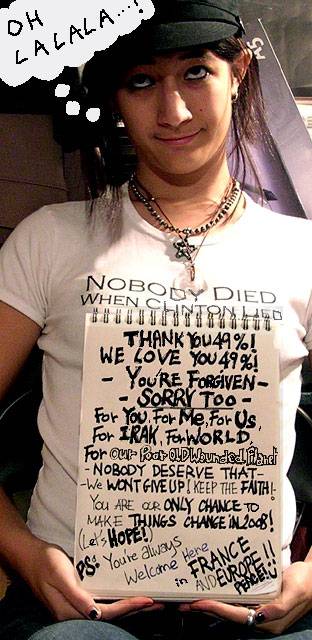 OH
LALALA...!
NOBODY DIED
WHEN CLINTON LIED
THANK YOU 49%!
WE LOVE YOU 49%!
- YOU'RE FORGIVEN -
- SORRY TOO -
For YOU, For Me, For Us,
For IRAK, For WORLD,
For Our Poor OLD Wounded Planet
- NOBODY DESERVE THAT -
- We WONT GIVE UP! KEEP THE FAITH!-
YOU ARE OUR ONLY CHANCE TO
MAKE THINGS CHANGE IN 2008!
(Let's HOPE!)
PS: You're always
Welcome Here
in FRANCE
AND EUROPE!!
PEACE!